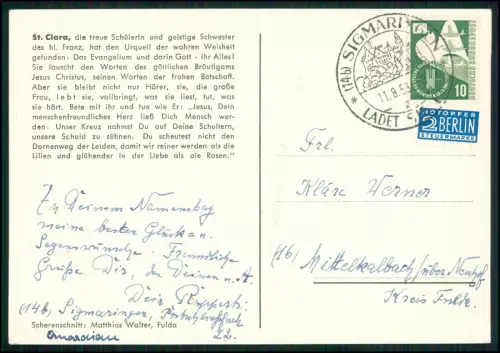 St. Clara, die treue Schülerin und geistige Schwester
des hl. Franz, hat den Urquell der wahren Weisheit
gefunden: Das Evangelium und darin Gott - ihr Alles!
Sie lauscht den Worten des göttlichen Bräutigams
Jesus Christus, seinen Worten der frohen Botschaft.
Aber sie bleibt nicht nur Hörer, sie, die große
Frau, lebt sie, vollbringt, was sie liest, tut, was
sie hört. Bete mit ihr und tue wie Er: „Jesus, Dein
menschenfreundliches Herz ließ Dich Mensch wer-
den: Unser Kreuz nahmst Du auf Deine Schultern,
unsere Schuld zu sühnen. Du scheutest nicht den
Dornenweg der Leiden, damit wir reiner werden als die
Lilien und glühender in der Liebe als die Rosen."
Zu Deinem Namenstag
meine besten Glück- u.
Segenswünsche. Freundliche
Grüße Dir, den Deinen u. A.
Dein Ruppert
(14b) Sigmaringen, Postschließfach
22.
Scherenschnitt: Matthias Walter, Fulda
(14b) SIGMARINGEN
11.8.5
LADET
10
NOTOPFER
2 BERLIN
STEUERMARKE
Frl.
Kläre Werner
(16) Mittelkalbach/über Neuhof
Kreis Fulda